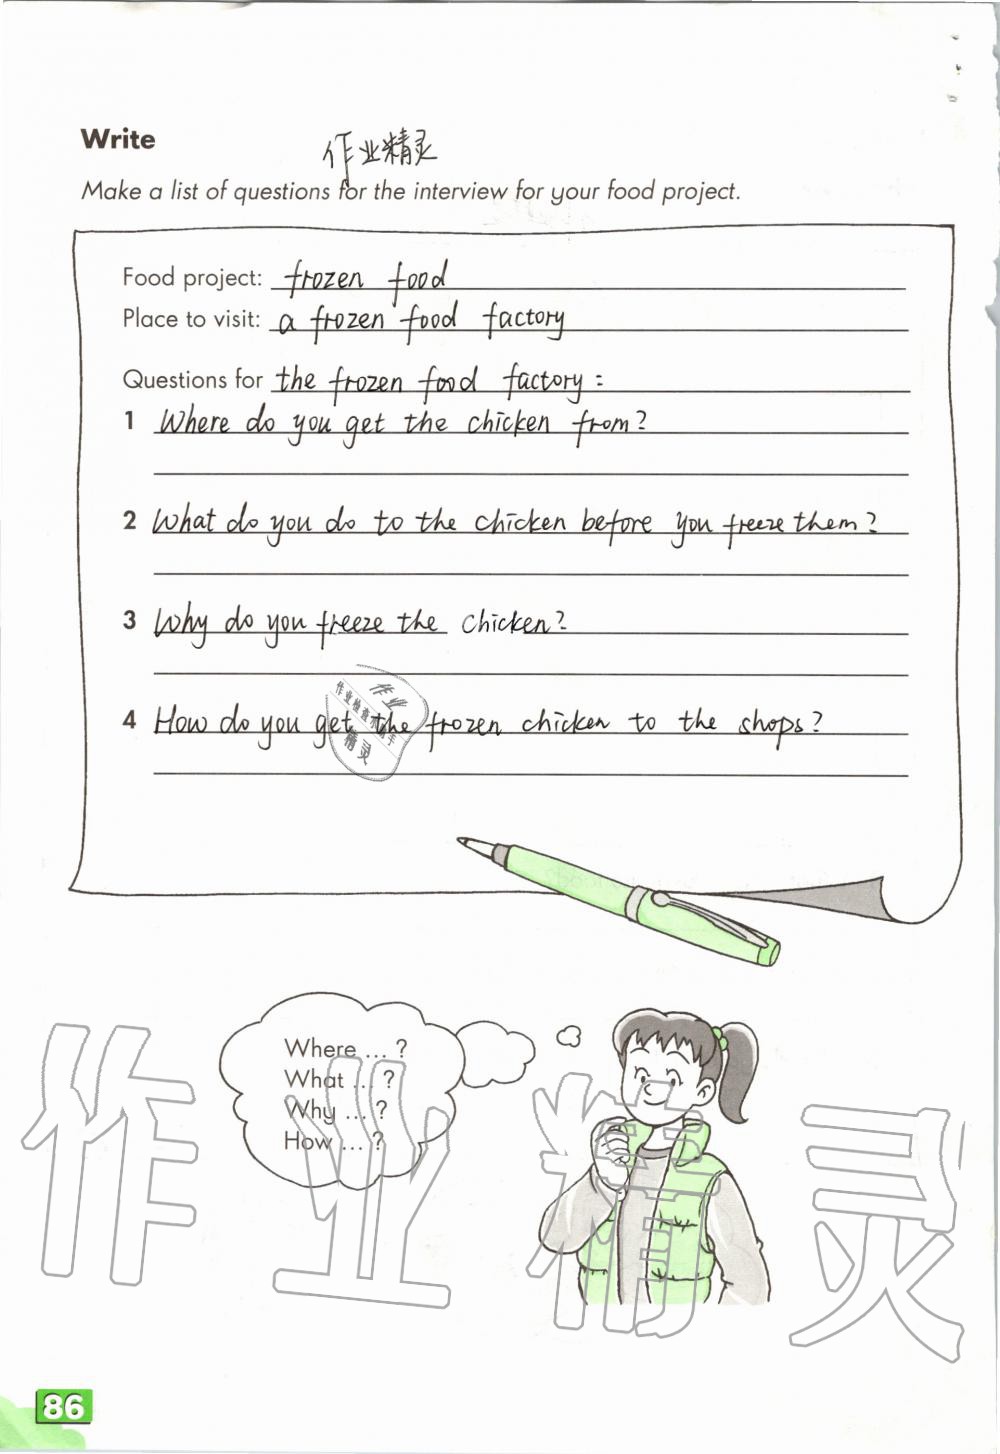 Write
作业精灵
Make a list of questions for the interview for your food project.
Food project: frozen food
Place to visit: a frozen food factory
Questions for the frozen food factory:
1 Where do you get the chicken from?
2 What do you do to the chicken before you freeze them?
3 Why do you freeze the chicken?
4 How do you get the frozen chicken to the shops?
作业
作业检查小助手
精灵
Where ... ?
What ... ?
Why ... ?
How ... ?
作业精灵
86